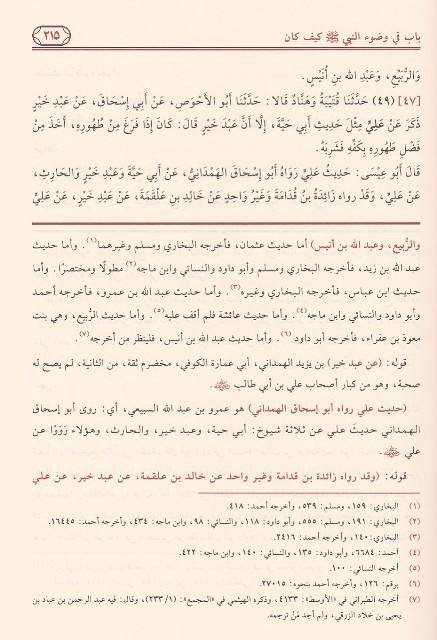 باب في وضوء النبي ﷺ كيف كان
٢١٥
وَالرُّبَيِّعِ، وَعَبْدِ اللهِ بنِ أُنَيْسٍ.
[٤٧] (٤٩) حَدَّثَنَا قُتَيْبَةُ وَهَنَّادٌ قَالا: حَدَّثَنَا أَبُو الأَحْوَصِ، عَنْ أَبِي إِسْحَاقَ، عَنْ عَبْدِ خَيْرٍ
ذَكَرَ عَنْ عَلِيٍّ مِثْلَ حَدِيثِ أَبِي حَيَّةَ، إِلَّا أَنَّ عَبْدَ خَيْرٍ قَالَ: كَانَ إِذَا فَرَغَ مِنْ طُهُورِهِ، أَخَذَ مِنْ
فَضْلِ طَهُورِهِ بِكَفِّهِ فَشَرِبَهُ.
قَالَ أَبُو عِيسَى: حَدِيثُ عَلِيٍّ رَوَاهُ أَبُو إِسْحَاقَ الهَمْدَانِيُّ، عَنْ أَبِي حَيَّةَ وَعَبْدِ خَيْرٍ وَالحَارِثِ،
عَنْ عَلِيٍّ، وَقَدْ رواه زَائِدَةُ بنُ قُدَامَةَ وَغَيْرُ وَاحِدٍ عَنْ خَالِدِ بنِ عَلْقَمَةَ، عَنْ عَبْدِ خَيْرٍ، عَنْ عَلِيٍّ
والرُّبيع، وعبد الله بن أنيس) أما حديث عثمان، فأخرجه البخاري ومسلم وغيرهما(١). وأما حديث
عبد الله بن زيد، فأخرجه البخاري ومسلم وأبو داود والنسائي وابن ماجه(٢) مطولًا ومختصرًا. وأما
حديث ابن عباس، فأخرجه البخاري وغيره(٣). وأما حديث عبد الله بن عمرو، فأخرجه أحمد
وأبو داود والنسائي وابن ماجه(٤). وأما حديث عائشة فلم أقف عليه(٥). وأما حديث الرُّبيع، وهي بنت
معوذ بن عفراء، فأخرجه أبو داود(٦). وأما حديث عبد الله بن أنيس، فلينظر من أخرجه(٧).
قوله: (عن عبد خير) بن يزيد الهمداني، أبي عمارة الكوفي، مخضرم ثقة، من الثانية، لم يصح له
صحبة، وهو من كبار أصحاب علي بن أبي طالب
(حديث علي رواه أبو إسحاق الهمداني) هو عمرو بن عبد الله السبيعي، أي: روى أبو إسحاق
الهمداني حديث علي عن ثلاثة شيوخ: أبي حية، وعبد خير، والحارث، وهؤلاء رَوَوْا عن
علي
قوله: (وقد رواه زائدة بن قدامة وغير واحد عن خالد بن علقمة، عن عبد خير، عن علي
(١) البخاري: ١٥٩، ومسلم: ٥٣٩، وأخرجه أحمد: ٤١٨.
(٢) البخاري: ١٩١، ومسلم: ٥٥٥، وأبو داود: ١١٨، والنسائي: ٩٨، وابن ماجه: ٤٣٤، وأخرجه أحمد: ١٦٤٤٥.
(٣) البخاري: ١٤٠، وأخرجه أحمد: ٢٤١٦.
(٤) أحمد: ٦٦٨٤، وأبو داود: ١٣٥، والنسائي: ١٤٠، وابن ماجه: ٤٢٢.
(٥) أخرجه النسائي: ١٠٠.
(٦) برقم: ١٢٦، وأخرجه أحمد بنحوه: ٢٧٠١٥.
(٧) أخرجه الطبراني في «الأوسط»: ٤١٣٣، وذكره الهيثمي في «المجمع»: (١/ ٢٣٣)، وقال: فيه عبد الرحمن بن عباد بن
يحيى بن خلاد الزرقي، ولم أجد مَنْ ترجمه.